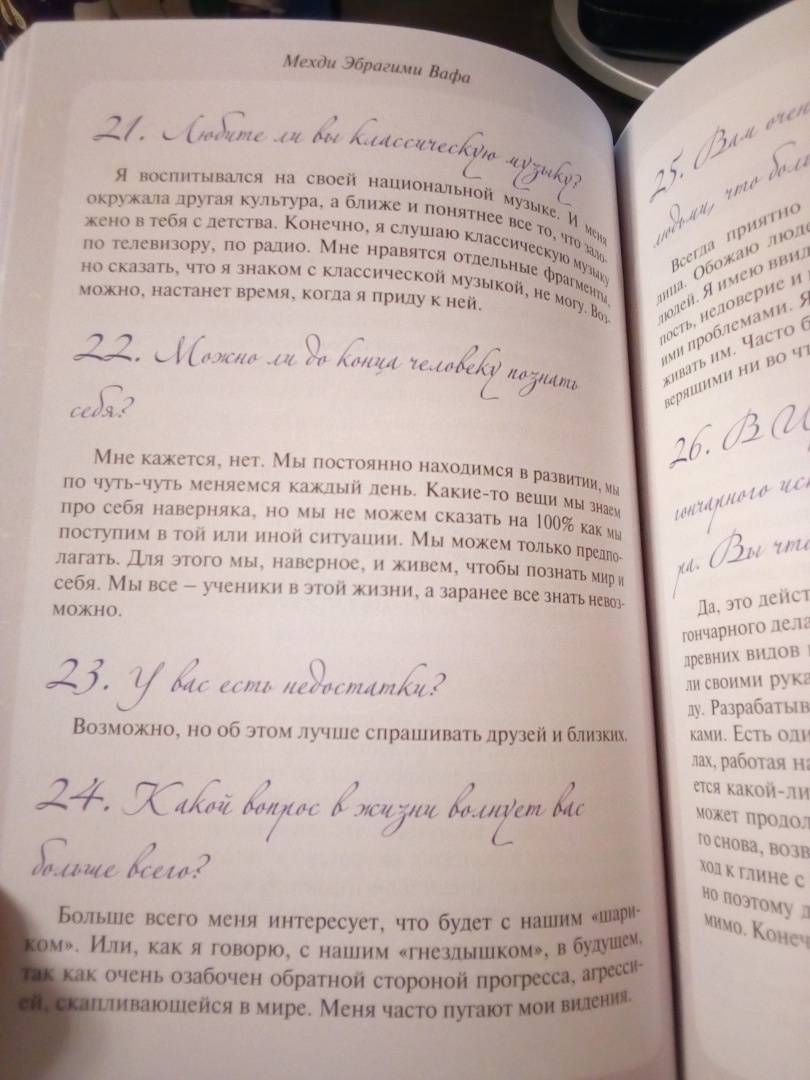 Мехди Эбрагими Вафа
21. Любите ли вы классическую музыку?
Я воспитывался на своей национальной музыке. И меня
окружала другая культура, а ближе и понятнее все то, что зало-
жено в тебя с детства. Конечно, я слушаю классическую музыку
по телевизору, по радио. Мне нравятся отдельные фрагменты,
но сказать, что я знаком с классической музыкой, не могу. Воз-
можно, настанет время, когда я приду к ней.
22. Можно ли до конца человеку познать
себя?
Мне кажется, нет. Мы постоянно находимся в развитии, мы
по чуть-чуть меняемся каждый день. Какие-то вещи мы знаем
про себя наверняка, но мы не можем сказать на 100% как мы
поступим в той или иной ситуации. Мы можем только предпо-
лагать. Для этого мы, наверное, и живем, чтобы познать мир и
себя. Мы все – ученики в этой жизни, а заранее все знать невоз-
можно.
23. У вас есть недостатки?
Возможно, но об этом лучше спрашивать друзей и близких.
24. Какой вопрос в жизни волнует вас
больше всего?
Больше всего меня интересует, что будет с нашим «шари-
ком». Или, как я говорю, с нашим «гнездышком», в будущем,
так как очень озабочен обратной стороной прогресса, агресси-
ей, скапливающейся в мире. Меня часто пугают мои видения.
25. Вам
людьми, что
Всегда приятно
лица. Обожаю
людей. Я имею ввид
пость, недоверие и
ими проблемами. Я
живать им. Часто
верящими ни во
26. В
гончарного
ра. Вы
Да, это
гончарного дела
древних видов
ли своими
ду. Разрабатыв
ками. Есть
лах, работая
ется какой-ли
может
го снова,
ход к глине с
но поэтому
мимо.